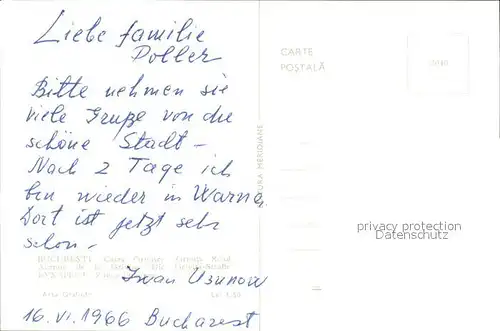 Liebe familie
Poller
Bitte nehmen sie
viele Gruße von die
schöne Stadt –
Nach 2 Tage ich
bin wieder in Warna,
Dort ist jetzt sehr
schon –
BUCUREŞTI
Iwan Usunow
Lei 1,50
16.VI.1966 Bucharest
EDITURA MERIDIANE
CARTE
POŞTALĂ
privacy protection
Datenschutz